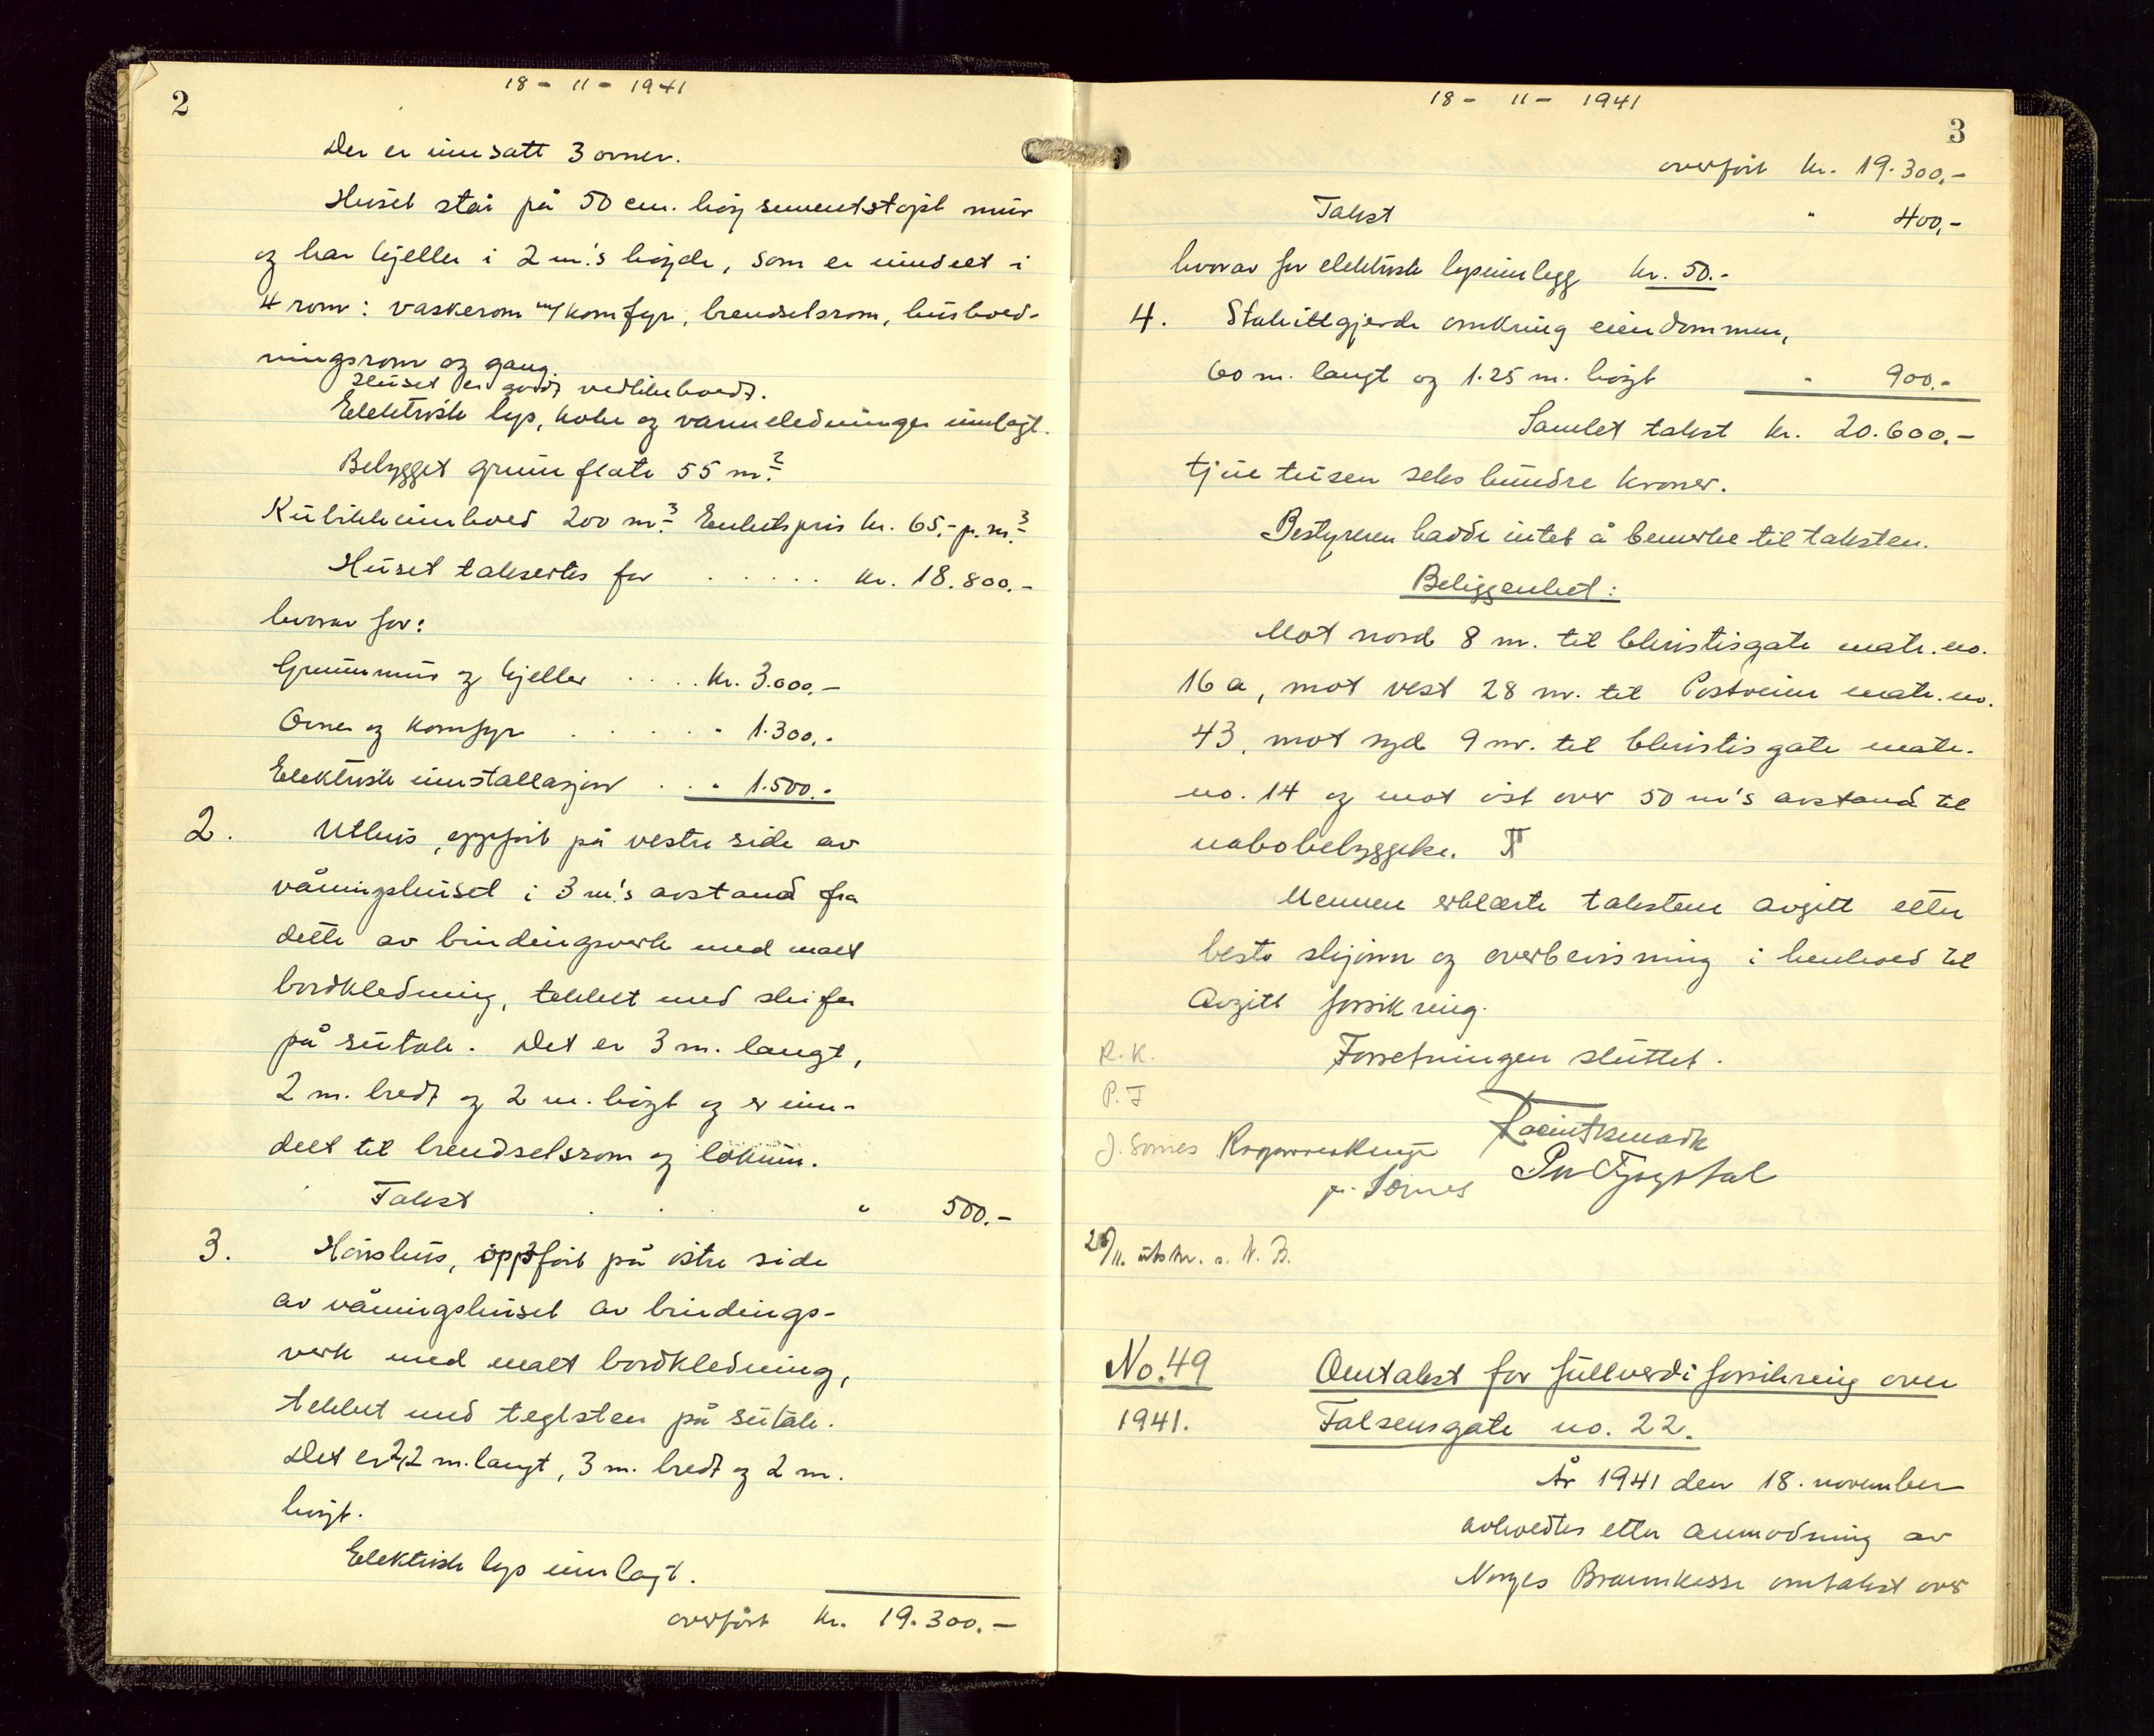 2
18 - 11 - 1941
Der er innsatt 3 ovner.
Huset står på 50 cm. høy sementstøpt mur
og har kjeller i 2 m.'s høyde, som er inndelt i
4 rom: vaskerom m/komfyr, brendselsrom, hushold-
ningsrom og gang.
Huset er godt vedlikeholdt.
Elektrisk lys, koke og varmeledninger innlagt.
Bebygget grunnflate 55 m.2
Kubikkinnhold 200 m.3 Enhetspris kr. 65,- p. m.3
Huset takseres for . . . . . kr. 18.800.-
hvorav for:
Grunnmur og kjeller . . . . kr. 3.000.-
Ovner og komfyr . . . . . " 1.300.-
Elektrisk innstallasjon . . " 1.500.-
2. Uthus, oppført på vestre side av
våningshuset i 3 m.'s avstand fra
dette av bindingsverk med malt
bordkledning, tekket med skifer
på sutak. Det er 3 m. langt,
2 m. bredt og 2 m. høgt og er inn-
delt til brendselsrom og lokum.
Takst . . " 500.-
3. Hønshus, oppført på østre side
av våningshuset av bindings-
verk med malt bordkledning,
tekket med teglsten på sutak.
Det er 2,2 m. langt, 3 m. bredt og 2 m.
høgt.
Elektrisk lys innlagt.
overført kr. 19.300.-
18 - 11 - 1941
3
overført kr. 19.300,-
Takst " 400,-
hvorav for elektrisk lysinnlegg kr. 50.-
4. Stakittgjerde omkring eiendommen,
60 m. langt og 1.25 m. høgt " 900.-
Samlet takst kr. 20.600.-
tjue tusen seks hundre kroner.
Bestyreren hadde intet å bemerke til taksten.
Beliggenhet:
Mot nord 8 m. til Christisgate matr. no.
16 a, mot vest 28 m. til Postveien matr. no.
43, mot syd 9 m. til Christisgate matr.
no. 14 og mot øst over 50 m's avstand til
nabobebyggelse.
Mennene erklærte taksten avgitt etter
beste skjønn og overbevisning i henhold til
avgitt forsikring.
R. K. Forretningen sluttet.
P. F
J. Sørnes
p. Sørnes
/11. utskr. s. N. B.
No. 49 Omtakst for fullverdiforsikring over
1941. Falsensgate no. 22.
År 1941 den 18. november
avholdtes etter anmodning av
Norges Brannkasse omtakst over